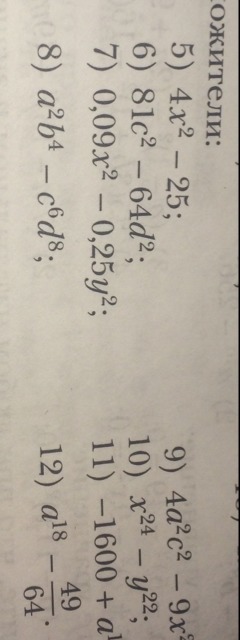 ожители:
5) 4x² − 25;
6) 81c² − 64d²;
7) 0,09x² − 0,25y²;
8) a²b⁴ − c⁶d⁸;
9) 4a²c² − 9x²
10) x²⁴ − y²²;
11) −1600 + a¹
12) a¹⁸ − 49/64.